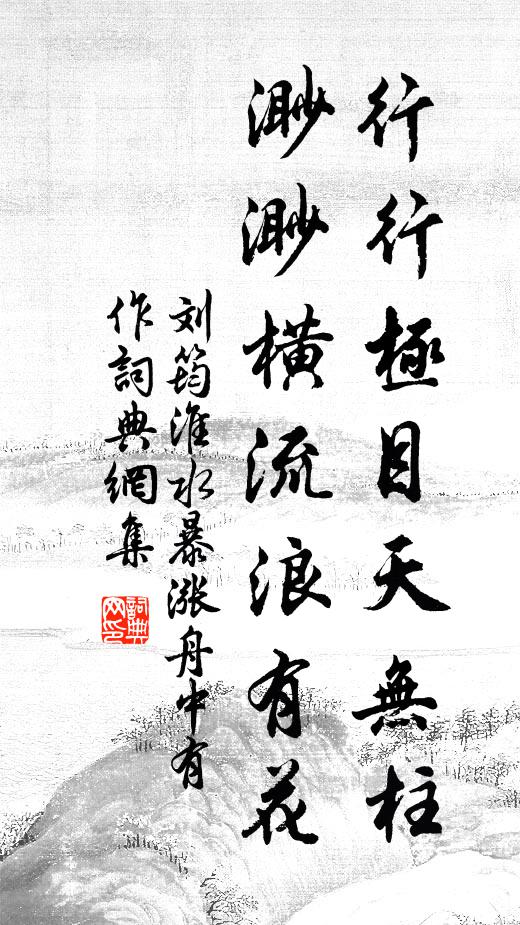 行行極目天無柱
渺渺橫流浪有花
刘筠淮水暴涨舟中有
作詞典網集
詞典
网印